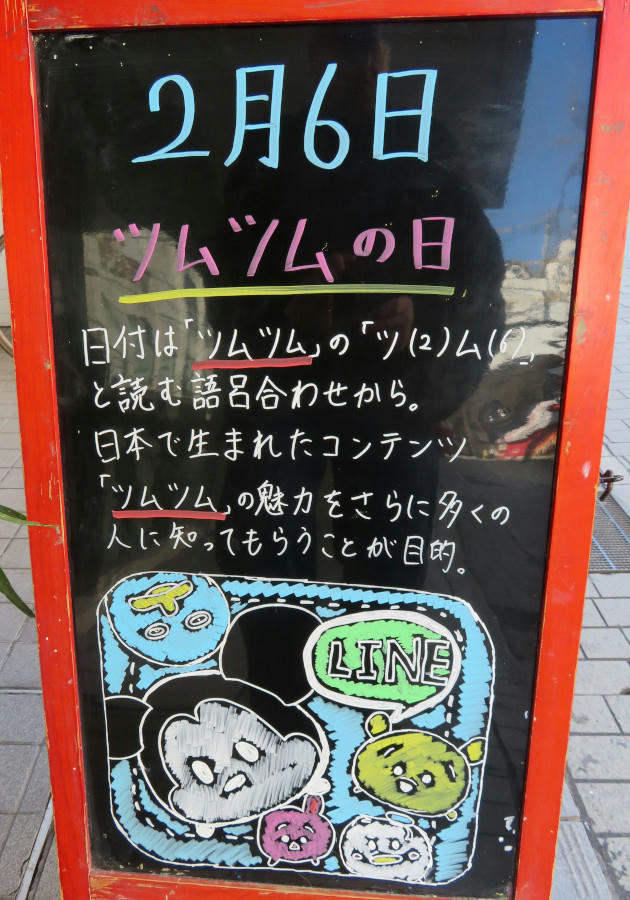 2月6日
ツムツムの日
日付は「ツムツム」の「ツ(2)ム(6)」
と読む語呂合わせから。
日本で生まれたコンテンツ
「ツムツム」の魅力をさらに多くの
人に知ってもらうことが目的。
LINE